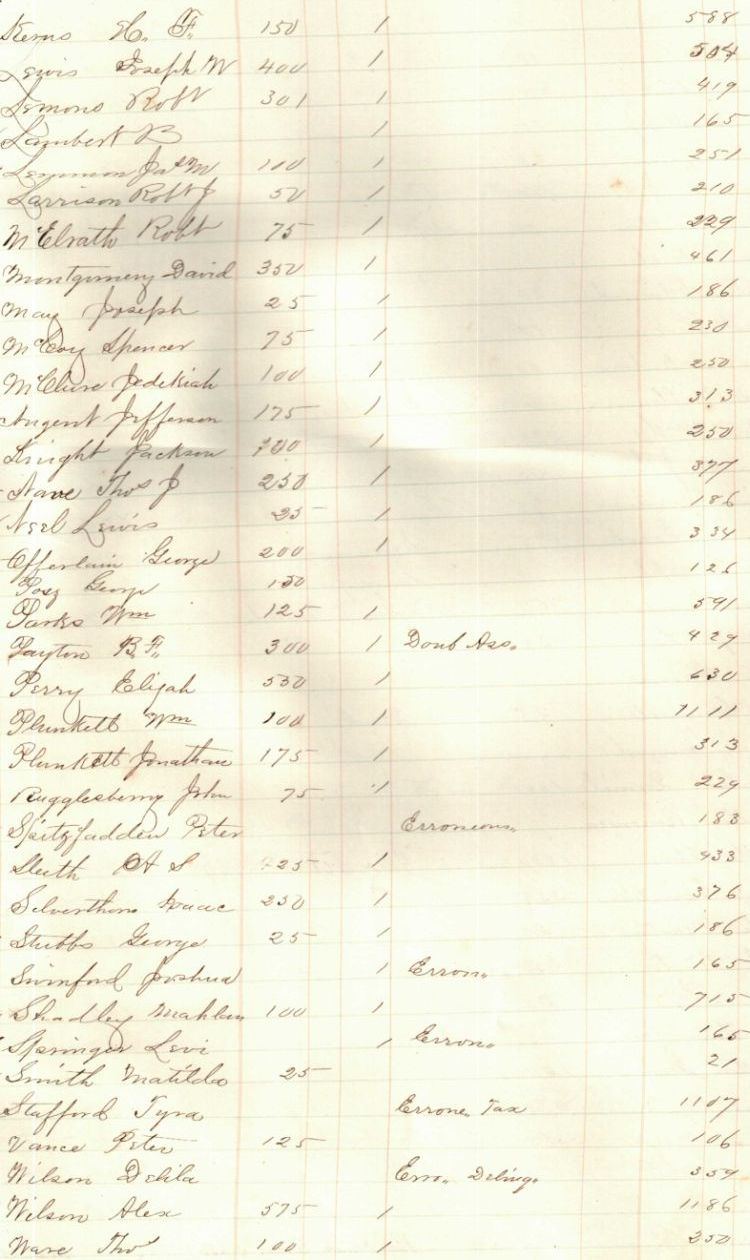 Kerns H. F. 150 1 588
Lewis Joseph W 400 1 504
Lemons Robt 301 1 419
Lambert B 1 165
Lemmon Jas M 100 1 251
Larrison Robt J 50 1 210
McElrath Robt 75 1 229
Montgomery David 350 1 461
May Joseph 25 1 186
McCoy Spencer 75 1 230
McClure Jedekiah 100 1 250
Nugent Jefferson 175 1 313
Knight Jackson 100 1 250
Nave Thos J 250 1 377
Neel Lewis 25 1 186
Offerlain George 200 1 334
Posy George 150 126
Parks Wm 125 1 591
Payton B. F. 300 1 Doub Ass. 429
Perry Elijah 530 1 630
Plunkett Wm 100 1 1111
Plunkett Jonathan 175 1 313
Rugglesberry John 75 1 229
Spitzfadden Peter Erroneous. 183
Sleuth A S 425 1 433
Silverthorn Isaac 250 1 376
Stubbs George 25 1 186
Swinford Joshua 1 Erron. 165
Shadley Mahlan 100 1 715
Springer Levi 1 Erron. 165
Smith Matilda 25 21
Stafford Tyra Errone. Tax 1107
Vance Peter 125 106
Wilson Delila Erro. Delinq. 359
Wilson Alex 575 1 1186
Ware Thos 100 1 250